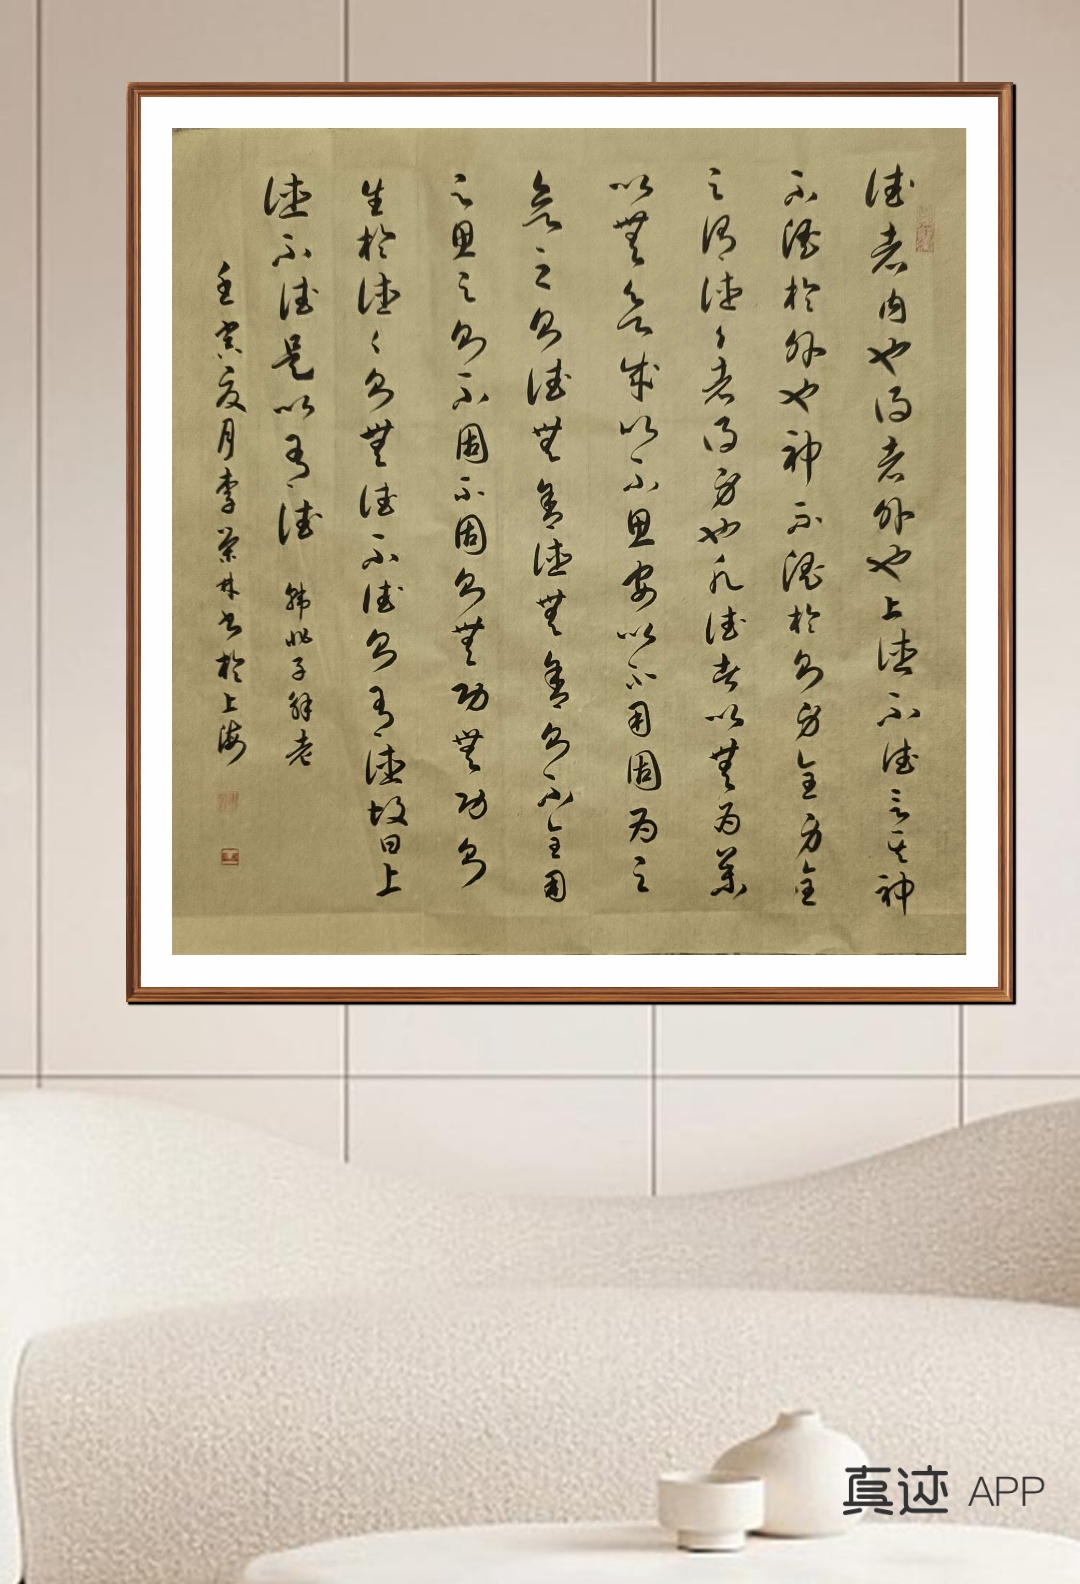 德者内也得者外也上德不德言其神
不淫於外也神不淫於則身全身全
之謂德德者得身也凡德者以無為集
以無欲成以不思安以不用固為之
欲之則德無舍德無舍則不全用
之思之則不固不固則無功無功則
生於德德則無德不德則有德故曰上
德不德是以有德 韓非子解老
壬寅夏月李榮林书於上海
真迹 APP